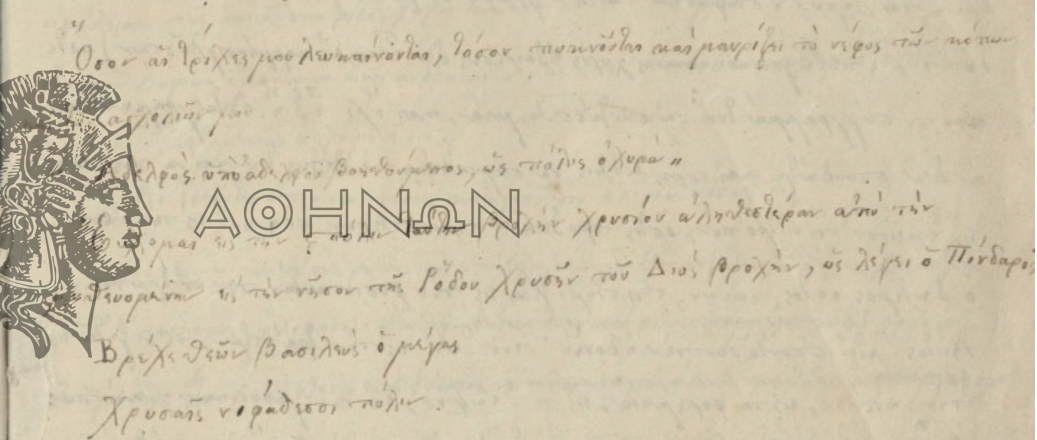 Ὅσον αἱ τρίχες μου λευκαίνονται, τόσον πυκνοῦται καὶ μαυρίζει τὸ νέφος τῶν κόπων
ἀσχολιῶν μου
Ἀδελφὸς ὑπὸ ἀδελφοῦ βοηθούμενος ὡς πόλις ὀχυρά"
ΑΘΗΝΩΝ
εἰς τὴν πόλιν ταύτην βροχὴν χρυσίου ἀληθεστέραν ἀπὸ τὴν
εἰς τὴν νῆσον τῆς Ῥόδου χρυσῆν τοῦ Διὸς βροχήν, ὡς λέγει ὁ Πίνδαρος
Βρέχε θεῶν βασιλεὺς ὁ μέγας
χρυσαῖς νιφάδεσσι πόλιν.